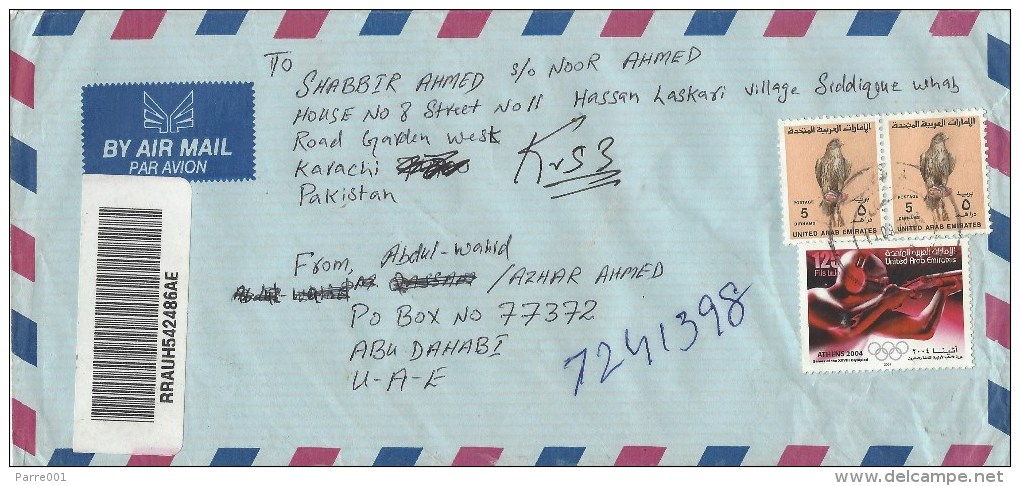 TO
SHABBIR AHMED s/o NOOR AHMED
HOUSE NO 8 Street NO 11 Hassan Laskari village Siddique whab
Road Garden West
Karachi
Pakistan
KrS3
BY AIR MAIL
PAR AVION
RRAUH542486AE
From, Abdul-wahid
/AZHAR AHMED
PO BOX NO 77372
ABU DAHABI
U-A-E
7241398
الإمارات العربية المتحدة
POSTAGE بريد
5 ٥
DIRHAMS دراهم
UNITED ARAB EMIRATES
الإمارات العربية المتحدة
POSTAGE بريد
5 ٥
DIRHAMS دراهم
UNITED ARAB EMIRATES
125 الإمارات العربية المتحدة
Fils فلس United Arab Emirates
ATHENS 2004 أثينا ٢٠٠٤
Parre001
delcampe.net